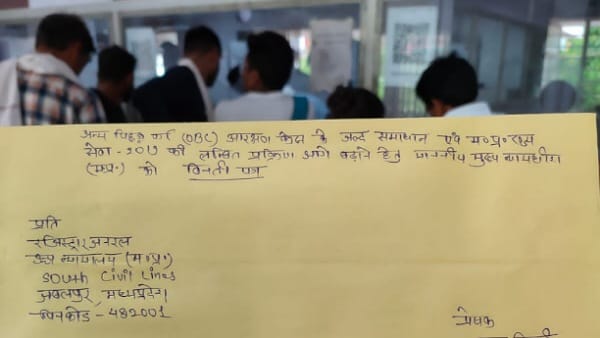 अन्य पिछड़ा वर्ग (OBC) आरक्षण केस के जल्द समाधान एवं म०प्र० राज्य
सेवा - 2019 की लम्बित प्रक्रिया आगे बढ़ाने हेतु माननीय मुख्य न्यायाधीश
(म.प्र.) को विनती पत्र
प्रति
रजिस्ट्रार जनरल
उच्च न्यायालय (म.प्र.)
South Civil Lines
जबलपुर, मध्यप्रदेश
पिनकोड - 482001
प्रेषक